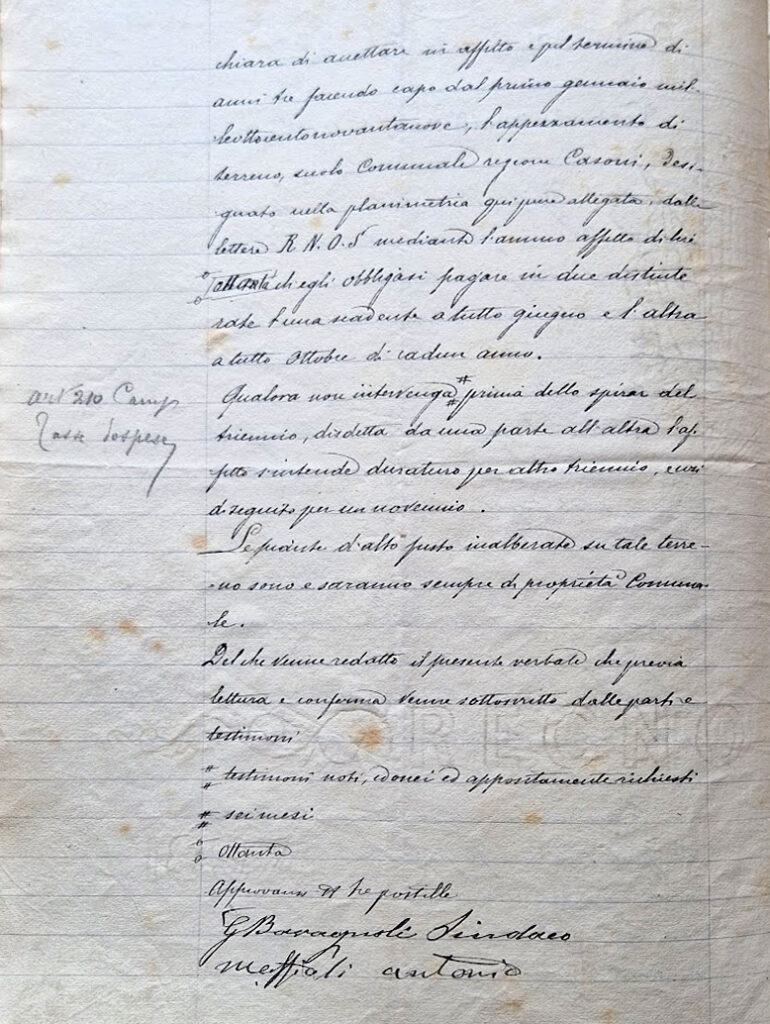 chiara di accettare in affitto e pel termine di
anni tre facendo capo dal primo gennaio mil-
leottocentonovantanove, l'appezzamento di
terreno, suolo Comunale regione Casoni, desi-
gnato nella planimetria qui pure allegata, dalle
lettere R. N. O. S mediante l'annuo affitto di lire
ottanta ch'egli obbligasi pagare in due distinte
rate l'una scadente a tutto giugno e l'altra
a tutto Ottobre di cadun anno.
Art 210 Camp
Tasse Sospese
Qualora non intervenga # prima dello spirar del
triennio, disdetta da una parte all'altra l'af-
fitto s'intende duraturo per altro triennio, e così
di seguito per un novennio.
Le piante d'alto fusto inalberate su tale terre-
no sono e saranno sempre di proprietà Comuna-
le.
Del che venne redatto il presente verbale che previa
lettura e conferma venne sottoscritto dalle parti e
testimoni
# testimoni noti, idonei ed appositamente richiesti
# sei mesi
Ottanta
Approvansi tre postille
G Bavagnoli Sindaco
antonio